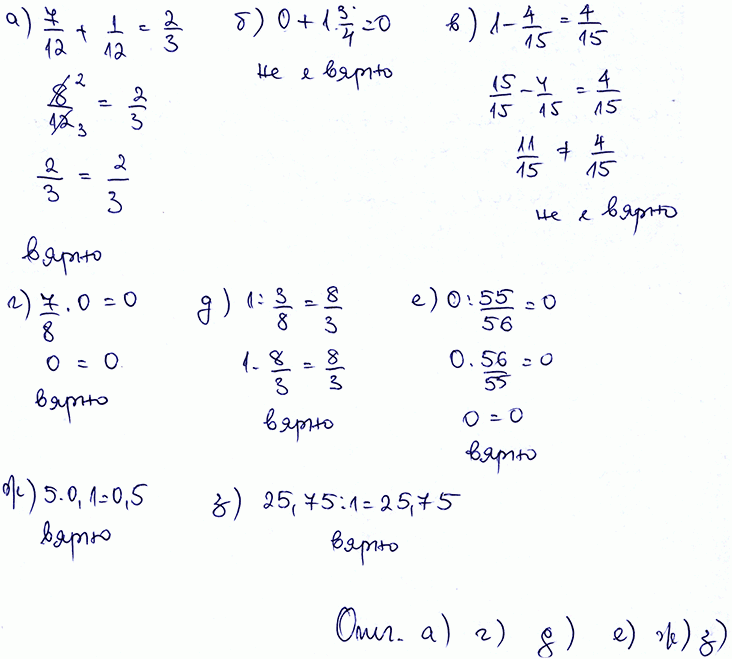 а) 7/12 + 1/12 = 2/3
8/12 = 2/3
2 3
2/3 = 2/3
вярно
б) 0 + 1 3/4 = 0
не е вярно
в) 1 - 4/15 = 4/15
15/15 - 4/15 = 4/15
11/15 ≠ 4/15
не е вярно
г) 7/8 . 0 = 0
0 = 0
вярно
д) 1 : 3/8 = 8/3
1 . 8/3 = 8/3
вярно
е) 0 : 55/56 = 0
0 . 56/55 = 0
0 = 0
вярно
ж) 5.0,1=0,5
вярно
з) 25,75:1=25,75
вярно
Отг. а) г) д) е) ж) з)